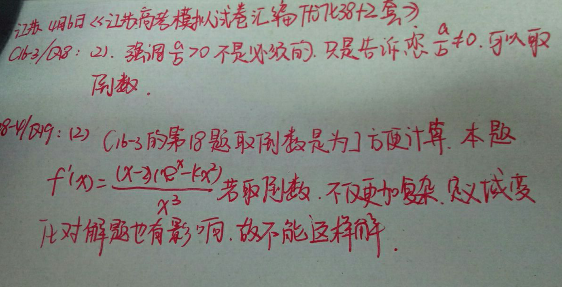 江苏 4月6日《江苏高考模拟试卷汇编 优化38+2套》
C16-3/Q18:(2). 强调 a/b>0 不是必须的. 只是告诉你 a/b≠0. 可以取
倒数.
8-4/Q19:(2) C16-3的第18题取倒数是为了方便计算. 本题
f'(x)=(x-2)(e^x-kx²)/x³ 若取倒数. 不仅更加复杂. 定义域变
化对解题也有影响. 故不能这样解.